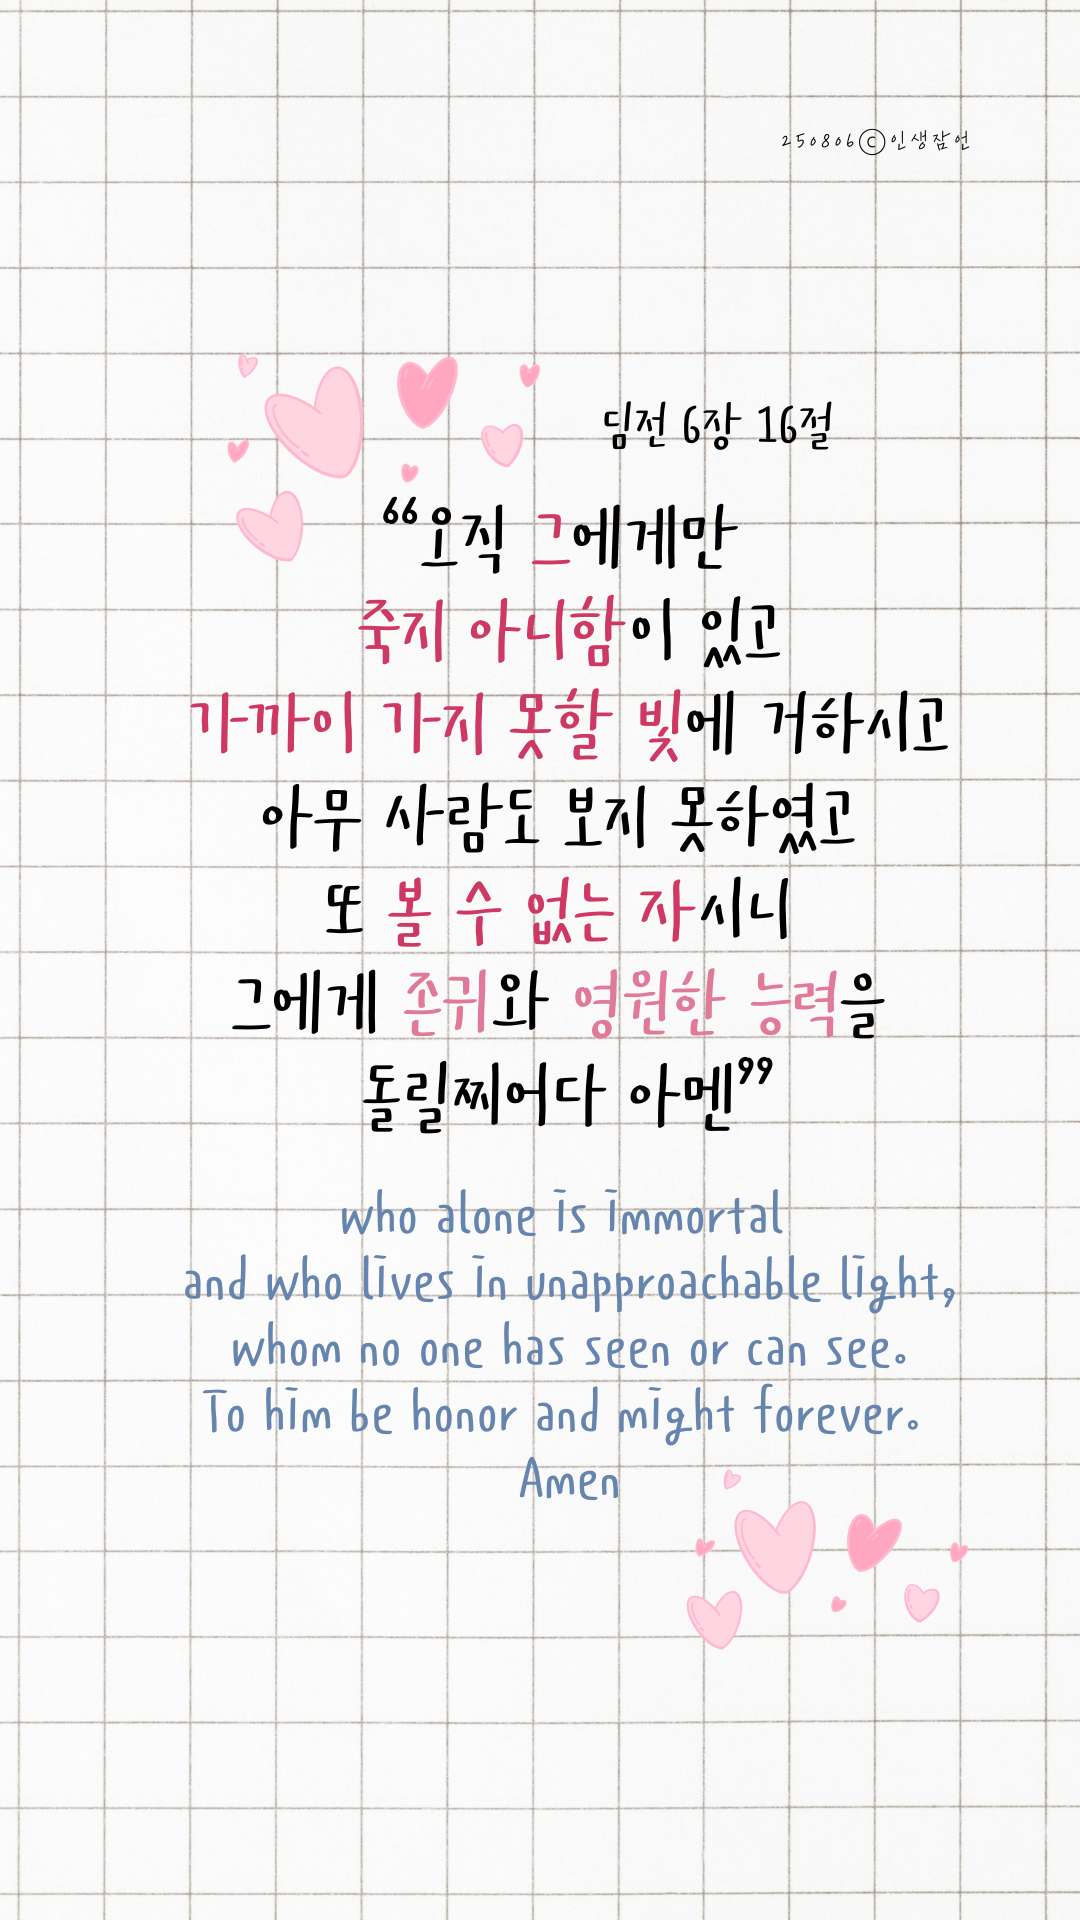 250806ⓒ인생잠언
딤전 6장 16절
“오직 그에게만
죽지 아니함이 있고
가까이 가지 못할 빛에 거하시고
아무 사람도 보지 못하였고
또 볼 수 없는 자시니
그에게 존귀와 영원한 능력을
돌릴찌어다 아멘”
who alone is immortal
and who lives in unapproachable light,
whom no one has seen or can see.
To him be honor and might forever.
Amen